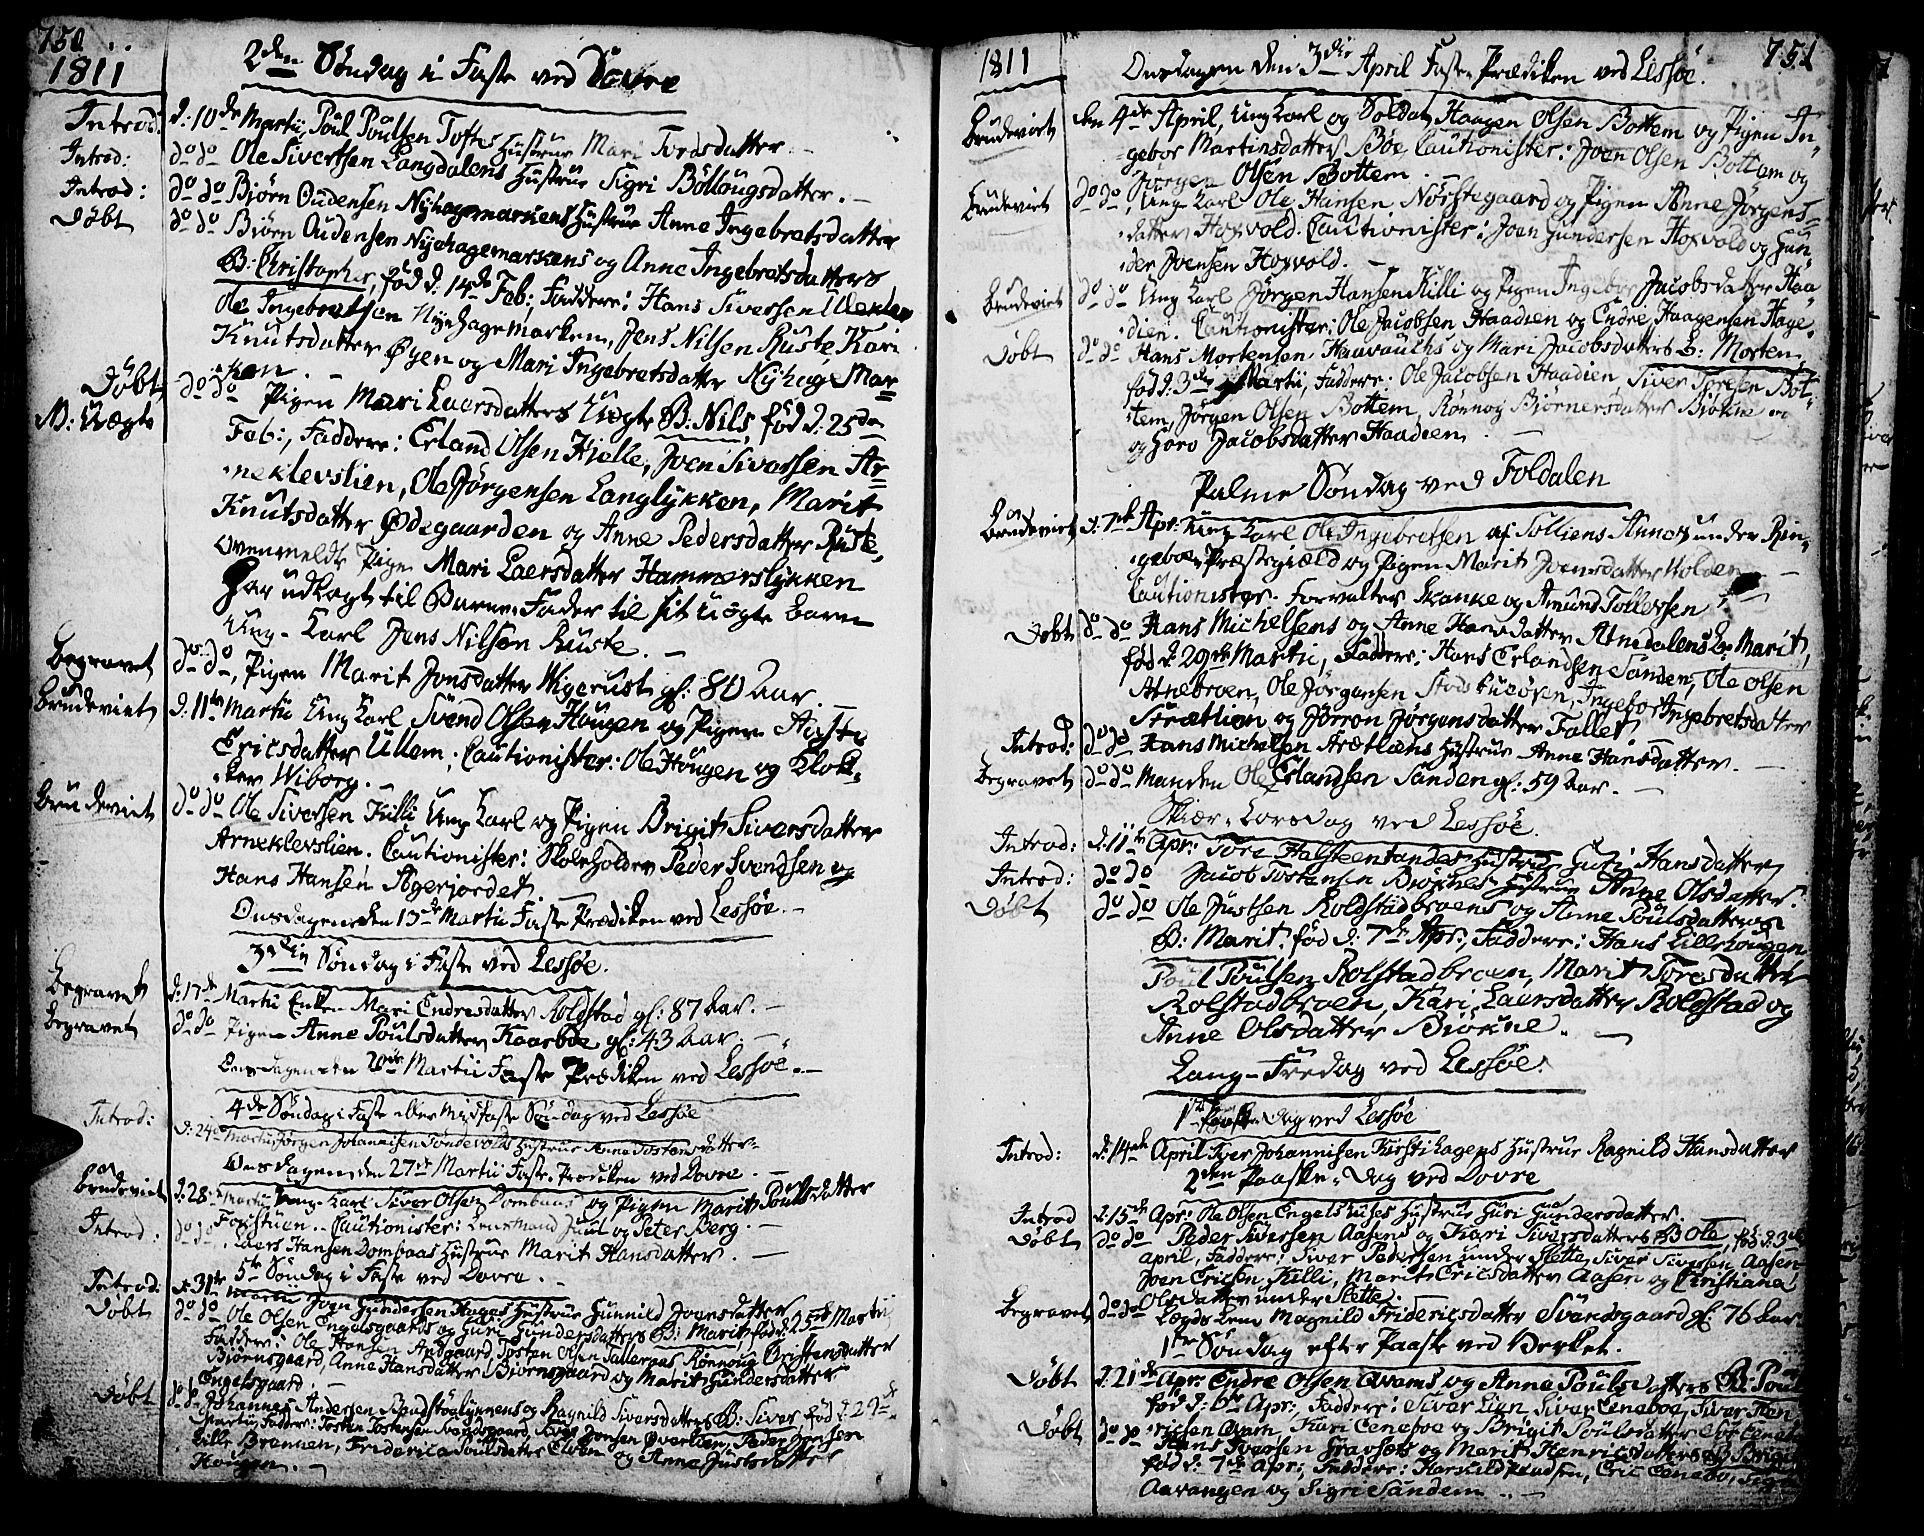 750
1811
2den Søndag i Faste ved Dovre
Introd: d: 10de Martii, Poul Poulsen Toftes Hustrue Mari Tordsdatter.
Introd: do do Ole Sivertsen Langdalens Hustrue Sigri Bøllougsdatter.
Introd: do do Biørn Oudensen Nyhagemarkens Hustrue Anne Ingebretsdatter
Døbt do do Biørn Oudensen Nyehagemarkens og Anne Ingebretsdatters
B: Christopher, fød d: 14de Feb: Faddere: Hans Siversen
Ole Ingebretsen Nyehagemarken, Jens Nilsen Ruste Kari
Knutsdatter Øyen og Mari Ingebretsdatter Nyhage Mar=
ken.
Døbt do do Pigen Mari Laersdatters Uægte B: Nils, fød d: 25de
N: Uægte Feb:, Faddere: Erland Olsen Kielle, Joen Siversen Ar=
neklevslien, Ole Jørgensen Langlykken, Marit
Knutsdatter Ødegaarden og Anne Pedersdatter Ruste,
ovenmeldte Pige Mari Laersdatter Hammerslykken
har udlagt til Barne-Fader til sit uægte barn
Ung-Karl Jens Nilsen Ruste.
Begravet do do, Pigen Marit Jonsdatter Wigerust gl: 80 Aar.
Brudeviet d: 11te Martii Ung Karl Svend Olsen Hougen og Pigen
Ericsdatter Ullem. Cautionister: Ole Hougen og Klok=
ker Wiborg.
Brudeviet do do Ole Siversen Killi Ung Karl og Pigen Brigit Siversdatter
Arneklevslien. Cautionister: Skoleholder Peder Svendsen og
Hans Hansen Agerjordet.
Onsdagen den 13de Martii Faste Prædiken ved Lessøe.
3die Søndag i Faste ved Lessøe.
Begravet d: 17de Martii Enken Mari Endresdatter Roldstad gl: 87 Aar.
Begravet do do Pigen Anne Poulsdatter Kaarboe gl: 43 Aar.
Onsdagen den 20de Martii Faste Prædiken ved Lessøe.
4de Søndag i Faste eller Midfaste Søndag ved Lessøe
Introd: d: 24de Martii Jørgen Johannisen Søndevolds Hustrue Anne Tostensdatter
Onsdagen den 27de Martii Faste Prædiken ved Dovre.
Brudeviet d: 28de Martii Ung Karl Siver Olsen Dombaas og Pigen Marit Poulsdatter
Fogstuen. Cautionister: Lensmand Juul og Peter Berg.
Introd: do do Laers Hansen Dombaas Hustrue Marit Hansdatter.
5te Søndag i Faste ved Dovre.
Introd d: 31te Martii Joen Gundersen Hages Hustrue Gunnild Joensdatter
Døbt do do Ole Olsen Engelsgaards og Guri Gundersdatters B: Marit, fød d: 25de Martii
Faddere: Ole Hansen Andgaard, Tosten Olsen Talleraas Rønnoug Christensdatter
Biørnsgaard, Anne Hansdatter Biørnsgaard og Marit Gundersdatter
Engelsgaard.
Døbt do do Johannes Andersen Baadstølykkens og Ragnild Siversdatters B: Siver fød d: 29de
Martii, Faddere: Tosten Tostensen Svendsgaard, Siver Jonsen Øverlien, Peder Jonsen
Lille Brennen, Friderica Poulsdatter Elven og Anne Justsdatter
Hougen.
1811
751
Onsdagen den 3die April Faste Prædiken ved Lessøe.
Brudeviet den 4de April, Ung Karl og Soldat Haagen Olsen Bottem og Pigen In=
gebor Martinsdatter Bøe, Cautionister: Joen Olsen Bottem og
Jørgen Olsen Bottem.
Brudeviet do do, Ung Karl Ole Hansen Nørstegaard og Pigen Anne Jørgens=
datter Hoxvold. Cautionister: Joen Gundersen Hoxvold og Gun=
der Joensen Hoxvold.
Brudeviet do do Ung Karl Jørgen Hansen Killi og Pigen Ingebor Jacobsdatter Haa=
dien. Cautionister: Ole Jacobsen Haadien og Endre Haagensen Hage.
Døbt do do Hans Mortensen Haavaughs og Mari Jacobsdatters B: Morten,
fød d: 3de Martii, Faddere: Ole Jacobsen Haadien, Siver Toresen Bot=
tem, Jørgen Olsen Bottem, Rønnog Biørnersdatter Biøkne
og Goro Jacobsdatter Haadien.
Palme Søndag ved Foldalen
Brudeviet d: 7de Apr: Ung Karl Ole Ingebretsen af Solliens Annex under Rin=
geboe Præstegiæld og Pigen Marit Joensdatter Holden
Cautionister. Forvalter Skanke og Amund Tollefsen
Døbt do do Hans Michelsens og Anne Hansdatter Atnedalens B: Marit,
fød d: 29de Martii, Faddere: Hans Erlandsen Sanden, Ole Olsen
Atnebroen, Ole Jørgensen Stodsbuøien, Ingebor Ingebretsdatter
Strætlien og Jørron Jørgensdatter Fallet
Introd: do do Hans Michelsen Strætliens Hustrue Anne Hansdatter.
Begravet do do Manden Ole Erlandsen Sanden gl: 59 Aar.
Skiær-Torsdag ved Lessøe.
Introd: d: 11te Apr: Tore Halsteentandes Hustrue Guri Hansdatter
Introd: do do Jacob Tostensen Biøknes Hustrue Anne Olsdatter.
Døbt do do Ole Justsen Roldstadbroens og Anne Poulsdatters
B: Marit, fød d: 7de Apr:, Faddere: Hans Lillehougen
Poul Poulsen Rolstadbroen, Marit Toresdatter
Rolstadbroen, Kari Laersdatter Roldstad og
Anne Olsdatter Biøkne.
Lang-Fredag ved Lessøe.
1te Paaske Dag ved Lessøe
Introd: d: 14de April Iver Johannisen Kirsti hagens Hustrue Ragnild Hansdatter
2den Paaske-Dag ved Dovre
Introd d: 15de Apr: Ole Olsen Engelshuses Hustrue Guri Gundersdatter.
Døbt do do Peder Siversen Aasens og Kari Siversdatters B: Ole, fød d: 3de
April, Faddere: Siver Pedersen under Slette, Siver Siversen Aasen
Joen Ericsen Killi, Marit Ericsdatter Aasen og Christiana
Olsdatter under Slette.
Begravet do do Lægds Lem Magnild Fridericsdatter Svendsgaard gl: 76 Aar
1te Søndag efter Paaske ved Verket.
Døbt d: 21de Apr: Endre Olsen Qvams og Anne Pouls datters B: Poul
fød d: 6te Apr:, Faddere: Siver Lien, Siver Ceneboe, Siver
ricsen Qvam, Kari Ceneboe og Brigit Poulsdatter
Døbt do do Hans Iversen Gravsets og Marit Henricsdatters B: Brigit
fød d: 7de Apr:, Faddere: Herskild Knudsen, Eric Ceneboe,
Aavangen og Sigri Sandem.